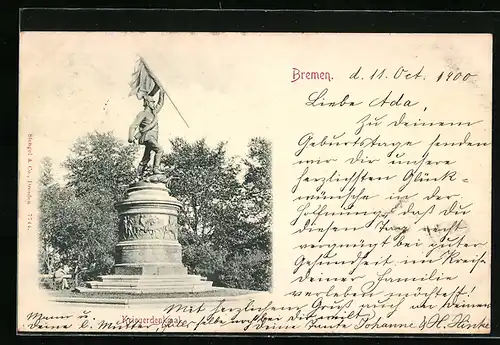 Bremen. d. 11. Oct. 1900
Liebe Ada,
Zu deinem
Geburtstage senden
wir dir unsere
herzlichsten Glück-
wünsche in der
Hoffnung, daß du
diesen Tag recht
vergnügt bei guter
Gesundheit im Kreise
deiner Familie
verleben möchtest!
Mit herzlichem Gruß auch an deinen
Mann u. deine l. Mutter
deine Tante Johanne & H. Hinke
Kriegerdenkmal
Stengel & Co., Dresden